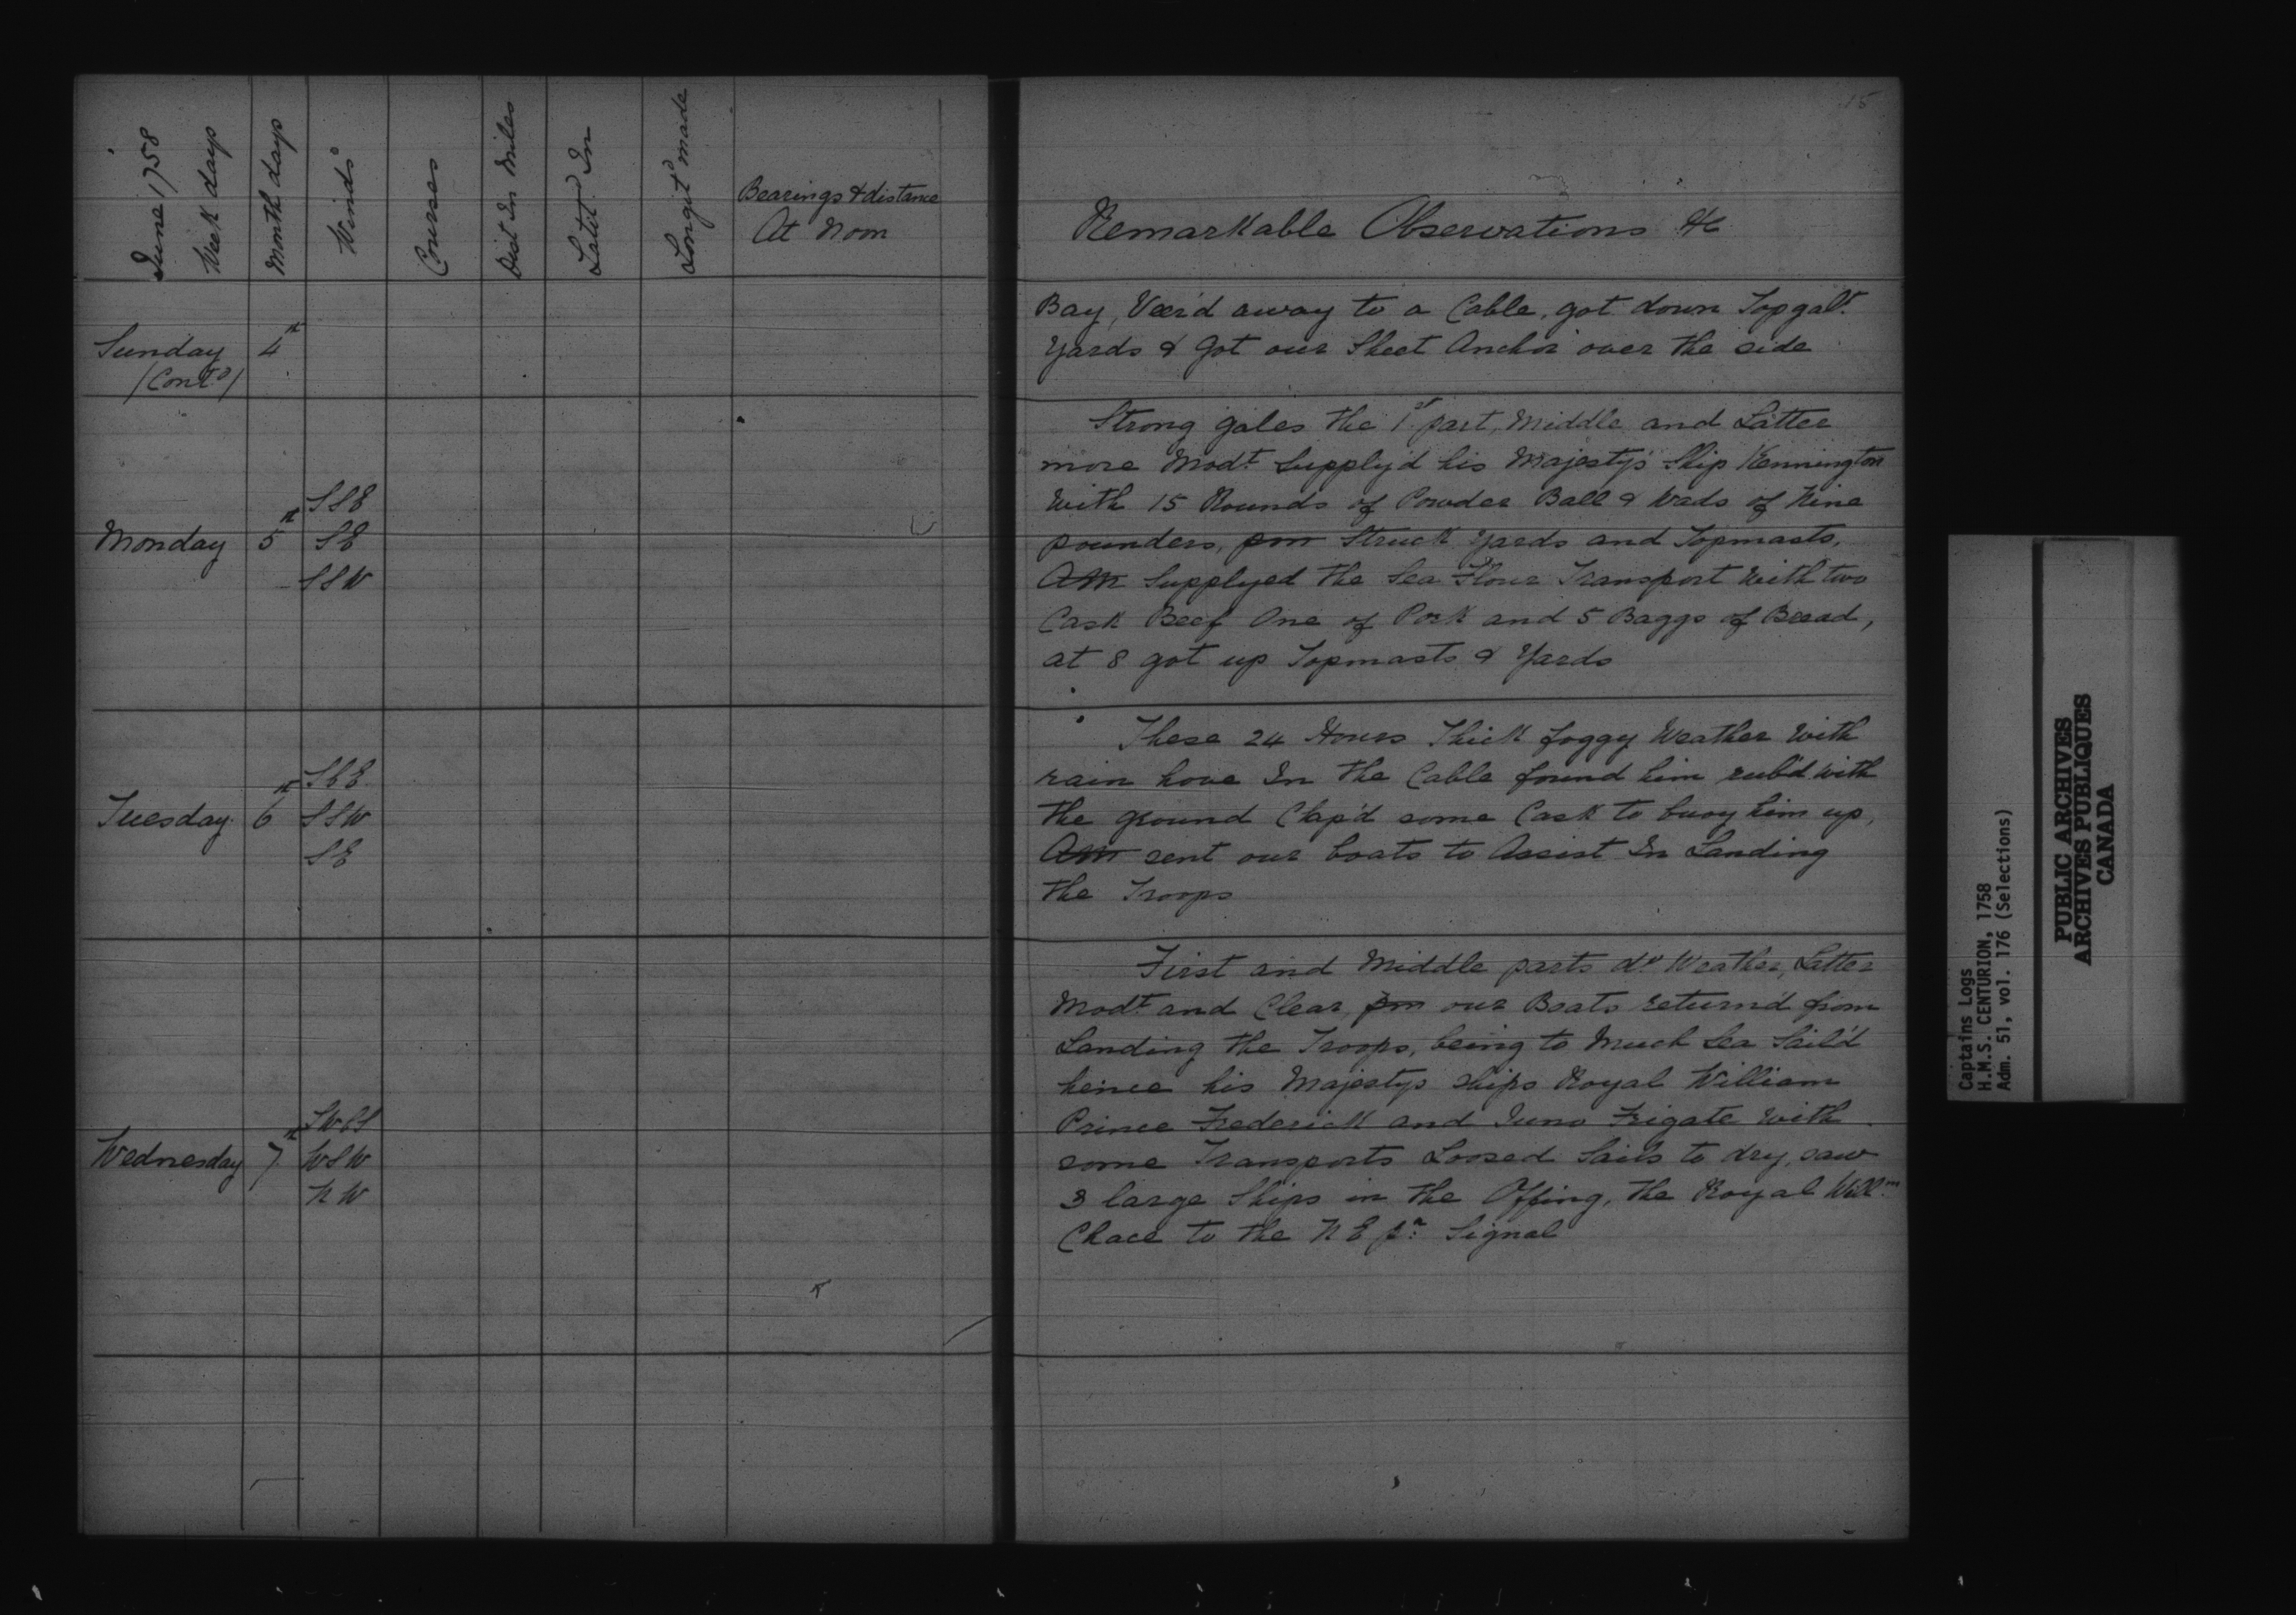 June 1758
Week days
Month days
Winds
Courses
Dist In Miles
Latitd In
Longitd made
Bearings & distance
At Noon
Sunday 4th
/Contd/
SSE
Monday 5th SE
SSW
SbE
Tuesday 6th SSW
SE
SWbS
Wednesday 7th WSW
NW
15
Remarkable Observations &c
Bay, Veer'd away to a Cable, got down Topgalt
Yards & Got our Sheet Anchor over the side
Strong gales the 1st part, Middle and Latter
more Modt Supply'd his Majestys Ship Kennington
With 15 Rounds of Powder Ball & Wads of Nine
pounders, pm Struck Yards and Topmasts,
AM Supplyed the Sea Flour Transport with two
Cask Beef One of Pork and 5 Baggs of Bread,
at 8 got up Topmasts & Yards
These 24 Hours Thick foggy Weather With
rain hove In the Cable found him rub'd with
the ground Clap'd some Cask to buoy him up,
AM sent our boats to Assist In Landing
the Troops
First and Middle parts do Weather, Latter
Modt and Clear, pm our Boats return'd from
Landing the Troops, being to Much Sea Sail'd
hence his Majestys ships Royal William
Prince Frederick and Juno Frigate with
some Transports Loosed Sails to dry, saw
3 large Ships in the Offing, the Royal Willm
Chace to the N E pr Signal
Captains Logs
H.M.S. CENTURION, 1758
Adm. 51, vol. 176 (Selections)
PUBLIC ARCHIVES
ARCHIVES PUBLIQUES
CANADA